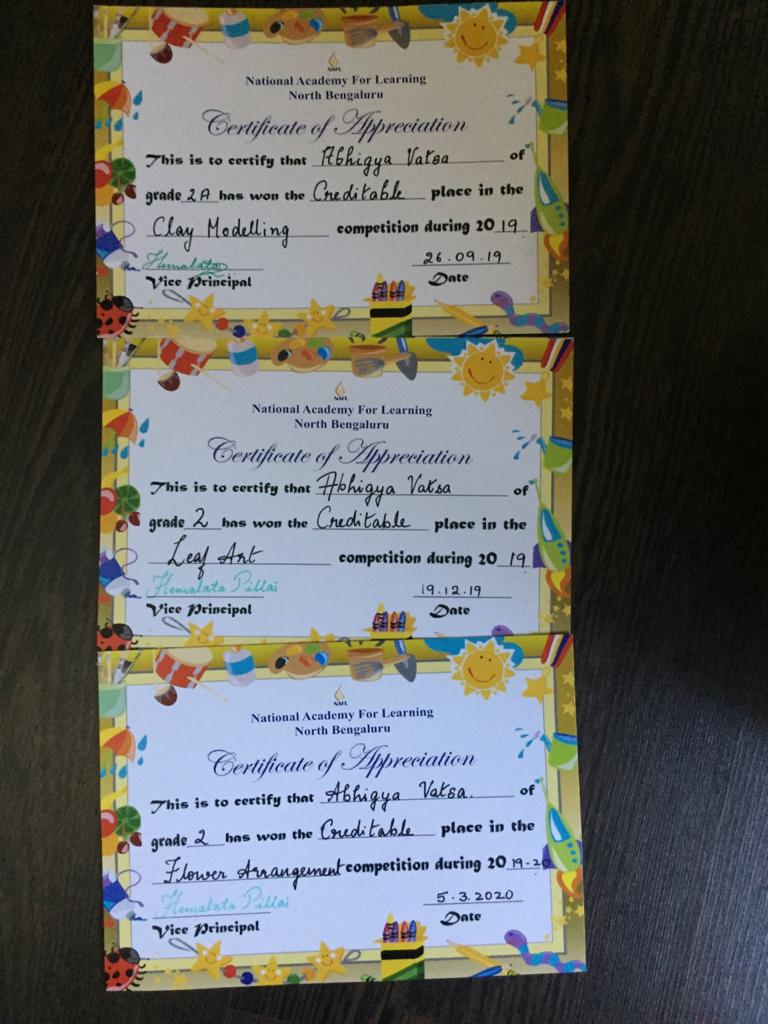 NAFL
National Academy For Learning
North Bengaluru
Certificate of Appreciation
This is to certify that Abhigya Vatsa of
grade 2A has won the Creditable place in the
Clay Modelling competition during 2019
Hemalata 26.09.19
Vice Principal Date
NAFL
National Academy For Learning
North Bengaluru
Certificate of Appreciation
This is to certify that Abhigya Vatsa of
grade 2 has won the Creditable place in the
Leaf Art competition during 2019
Hemalata Pillai 19.12.19
Vice Principal Date
NAFL
National Academy For Learning
North Bengaluru
Certificate of Appreciation
This is to certify that Abhigya Vatsa. of
grade 2 has won the Creditable place in the
Flower Arrangement competition during 2019-20
Hemalata Pillai 5.3.2020
Vice Principal Date